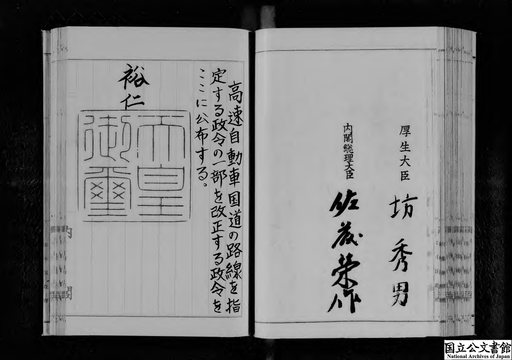 厚生大臣
坊秀男
内閣総理大臣
佐藤栄作
高速自動車国道の路線を指
定する政令の一部を改正する政令を
ここに公布する。
裕仁
天皇
御璽
国立公文書館
National Archives of Japan